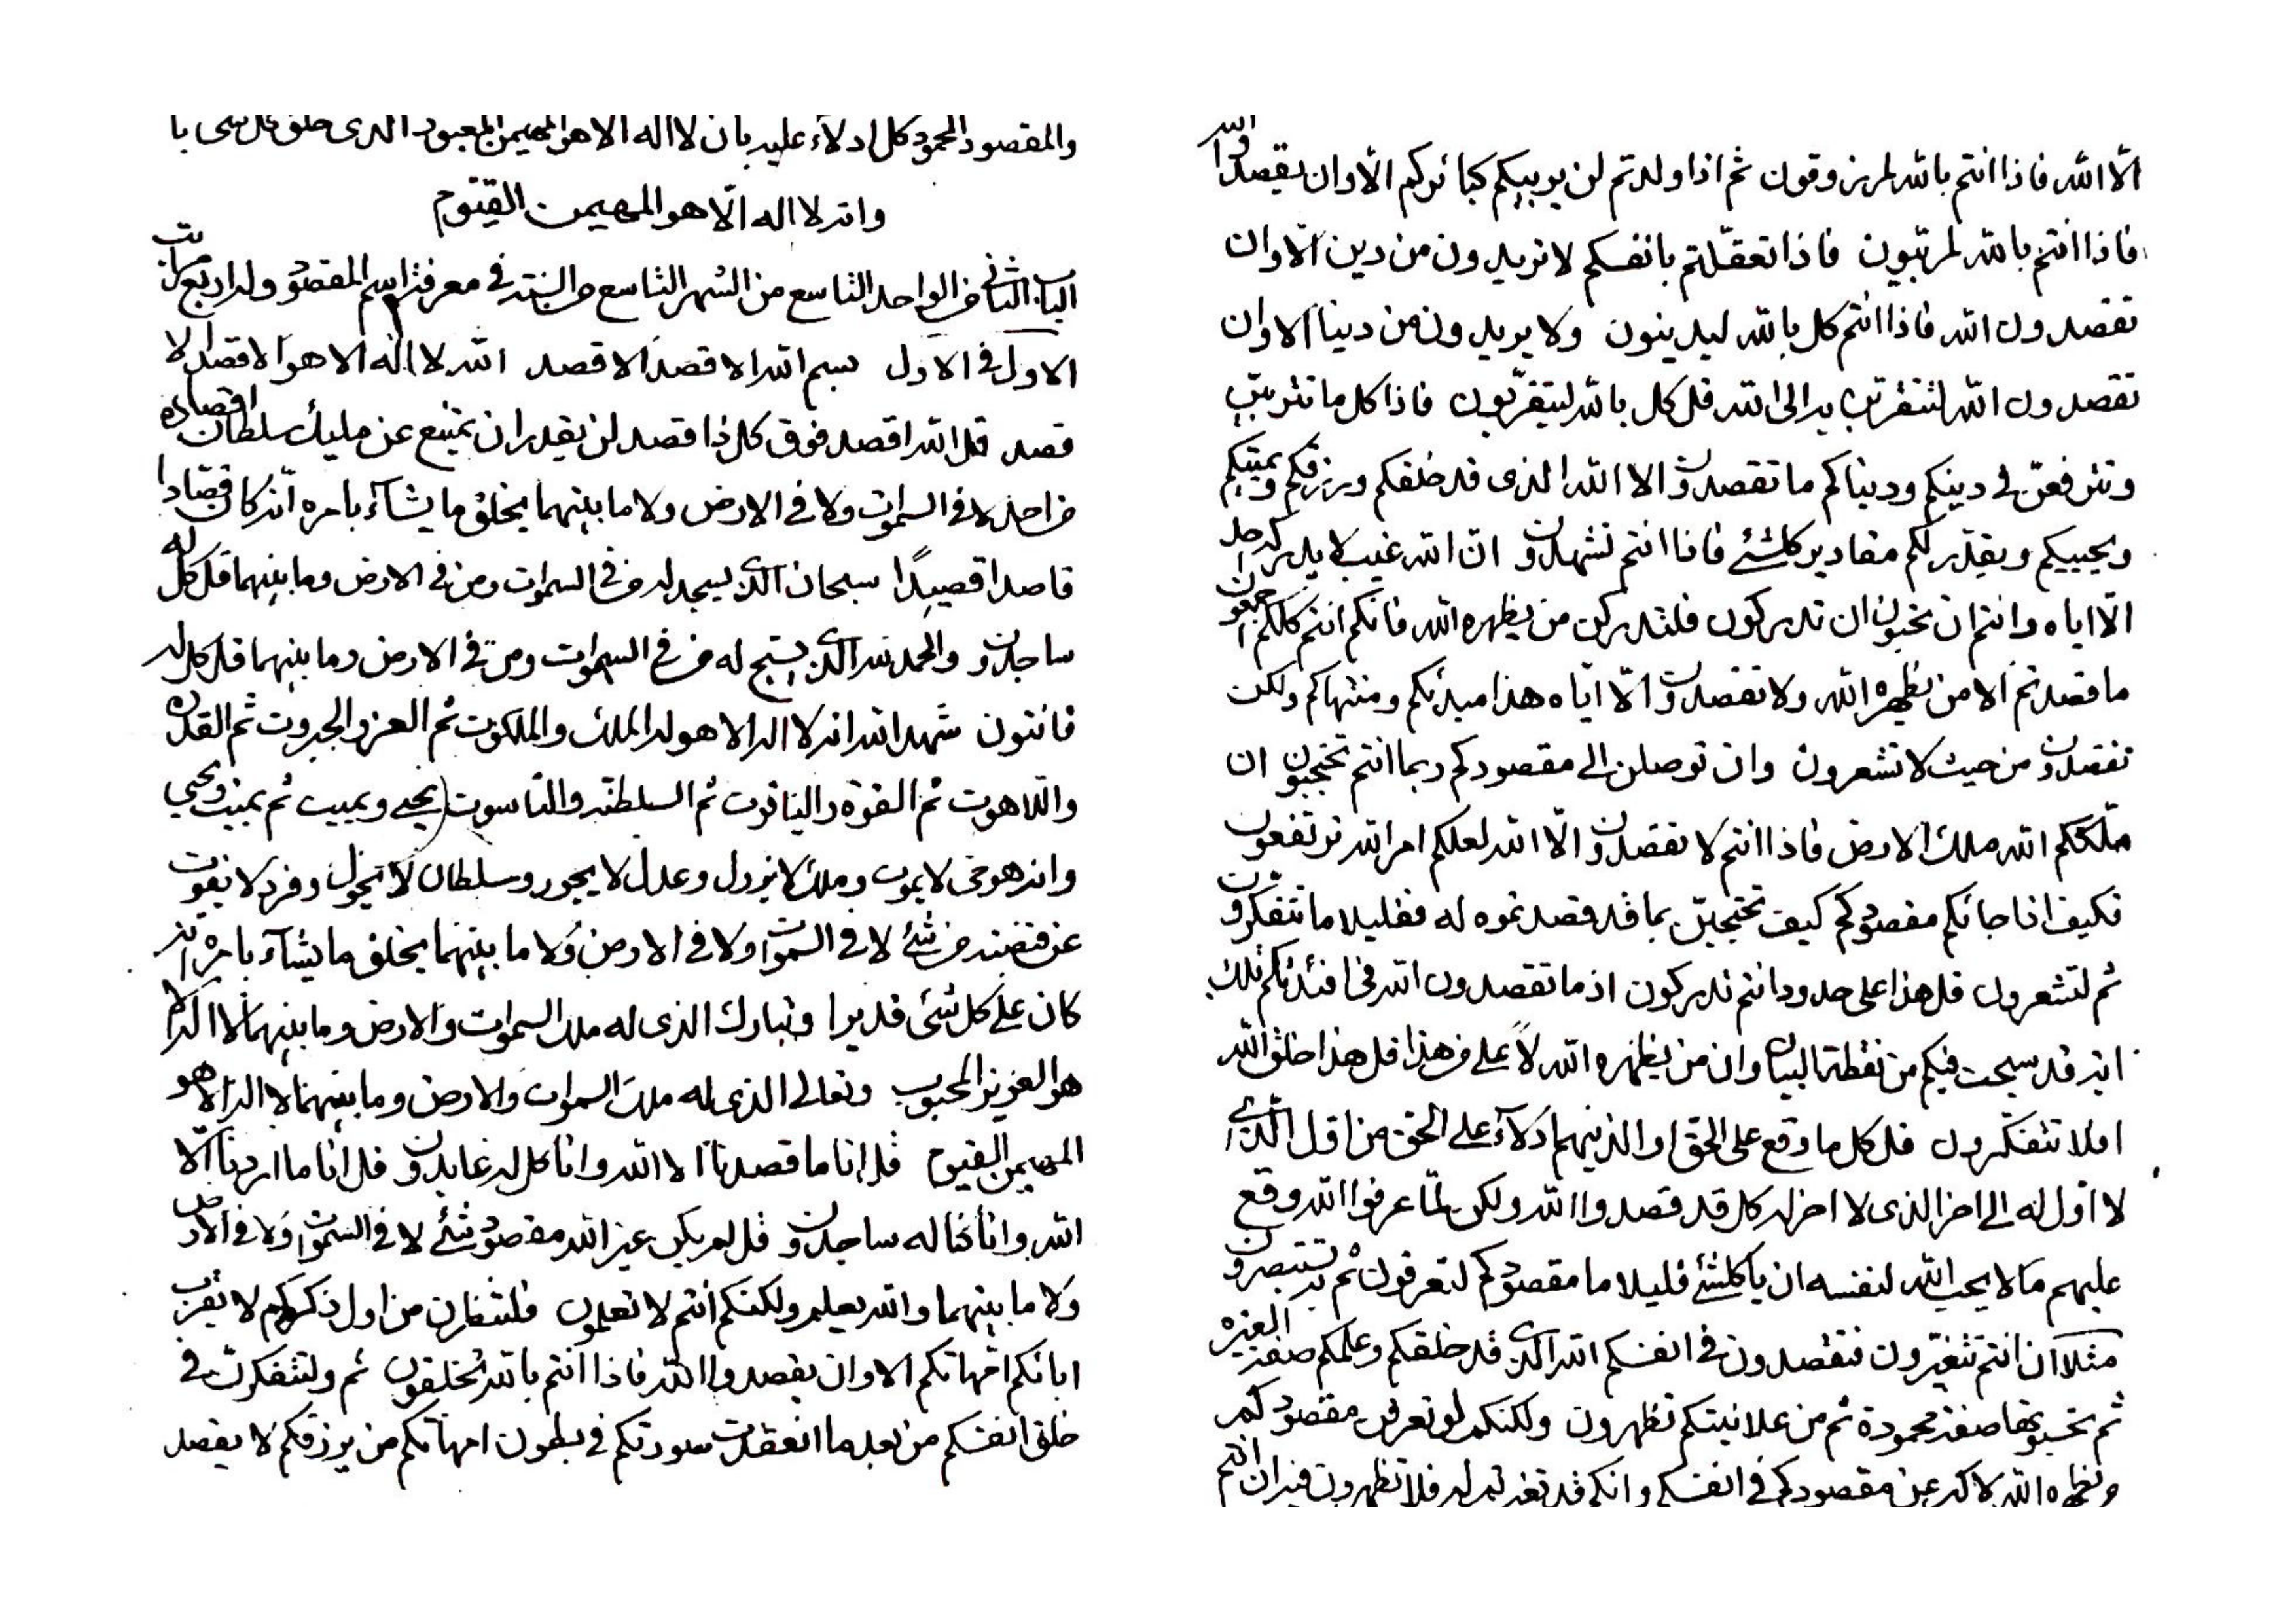 والمقصود المحمود كل ادلاء عليه بان لا اله الا هو المهيمن المعبود الذى خلق كل شى با
وانه لا اله الّا هو المهيمن القيّوم
الباب الثانى من الواحد التاسع من الشهر التاسع من السنة فى معرفة اسم المقصود وله اربع مراتب
الاول فى الاول بسم الله الاقصد الاقصد الله لا اله الا هو الاقصد الا
قصد قل الله اقصد فوق كل ذا اقصد لن يقدر ان يمتنع عن مليك سلطان اقصاده
من احد لا فى السموات ولا فى الارض ولا ما بينهما يخلق ما يشآء بامره انّه كان قصّادا
قاصدا قصيدًا سبحان الذى يسجد له من فى السموات ومن فى الارض وما بينهما قل كل له
ساجدون والحمد لله الذى يسبح له من فى السموات ومن فى الارض وما بينهما قل كل له
قانتون شهد الله انه لا اله الا هو له الملك والملكوت ثم العز والجبروت ثم القدرة
واللاهوت ثم القوة والياقوت ثم السلطنة والناسوت يحيى ويميت ثم يميت ويحيى
وانه هو حى لا يموت وملك لا يزول وعدل لا يجور وسلطان لا يحول وفرد لا يفوت
عن قبضته من شئ لا فى السموات ولا فى الارض ولا ما بينهما يخلق ما يشآء بامره انه
كان على كل شئ قديرا وتبارك الذى له ملك السموات والارض وما بينهما لا اله الا
هو العزيز المحبوب وتعالى الذى له ملك السموات والارض وما بينهما لا اله الا هو
المهيمن القيوم قل انا ما قصدنا الا الله وانا كل له عابدون قل انا ما اردنا الّا
الله وانا كنا له ساجدون قل لم يكن غير الله مقصود شئ لا فى السموات ولا فى الارض
ولا ما بينهما والله يعلم ولكنكم انتم لا تعلمون فلتنظرن من اول ذكركم لا يقرب
ابائكم امهاتكم الا وان يقصدوا الله فاذا انتم بالله لتخلقون ثم ولتتفكرن فى
خلق انفسكم من بعد ما انعقدت صورتكم فى بطون امهاتكم من يرزقكم لا يقصد
الّا الله فاذا انتم بالله لمرزوقون ثم اذا ولدتم لن يربيكم كبائركم الّا وان يقصدوا الله
فاذا انتم بالله لمربيون فاذا تعقّلتم بانفسكم لا تريدون من دين الّا وان
تقصدون الله فاذا انتم كل بالله ليدينون ولا يريدون من دينا الا وان
تقصدون الله لتتقربن به الى الله قل كل بالله ليتقربون فاذا كل ما تتربين
وتترفعن فى دينكم ودنياكم ما تقصدون الا الله الذى قد خلقكم ورزقكم ويميتكم
ويحييكم ويقدّر لكم مقادير كلشئ فاذا انتم تشهدون ان الله غيب لا يدركه احد
الّا اياه وانتم ان تحبون ان تدركون فلتدركن من يظهره الله فانكم انتم كلكم اجمعون
ما قصدتم الا من يظهره الله ولا تقصدون الّا اياه هذا مبدئكم ومنتهاكم ولكن
تقصدون من حيث لا تشعرون وان توصلن الى مقصودكم ربما انتم تحتجبون ان
ملككم الله ملك الارض فاذا انتم لا تقصدون الّا الله لعلكم امر الله ترتفعون
فكيف اذا جائكم مقصودكم كيف تحتجبن بما قد قصدتموه له فقليلا ما تتفكرون
ثم لتشعرون قل هذا على حدود انتم تدركون اذ ما تقصدون الله فى افئدتكم تلك
اية قد سبحت فيكم من نقطة البيان وان من يظهره الله لأعلى من هذا قل هذا خلق الله
افلا تتفكرون قل كل ما وقع على الحق او الذينهم ادلاء على الحق من اول الذى
لا اول له الى اخر الذى لا اخر له كل قد قصدوا الله ولكن لمّا عرفوا الله وقع
عليهم ما لا يحب الله لنفسه ان يا كلشئ قليلا ما مقصودكم لتعرفون ثم به تستبصرون
مثلا ان انتم تتغيرون فتقصدون فى انفسكم الله الذى قد خلقكم وعلمكم صفة الغيرة
ثم تحسبونها صفة محمودة ثم من علانيتكم تظهرون ولكنكم لو تعرفن مقصودكم